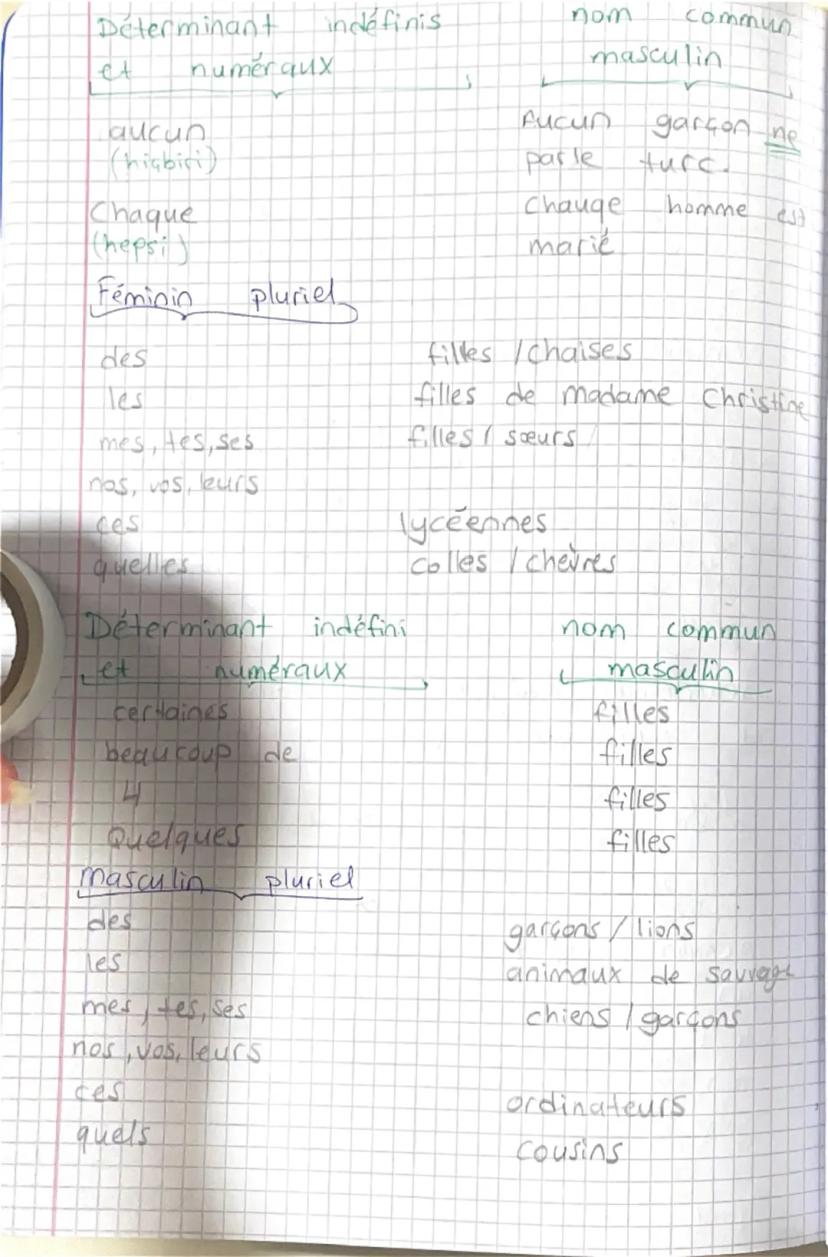 Déterminant indéfinis nom commun
et numéraux masculin
aucun Aucun garçon ne
(hiçbiri) parle turc.
Chaque Chauqe homme est
(hepsi) marié
Féminin pluriel
des filles / chaises
les filles de madame Christine
mes, tes, ses filles / sœurs
nos, vos, leurs
ces lycéennes
quelles colles / chèvres
Déterminant indéfini nom commun
et numéraux masculin
certaines filles
beaucoup de filles
4 filles
Quelques filles
Masculin pluriel
des garçons / lions
les animaux de sauvage
mes, tes, ses chiens / garçons
nos, vos, leurs
ces ordinateurs
quels cousins